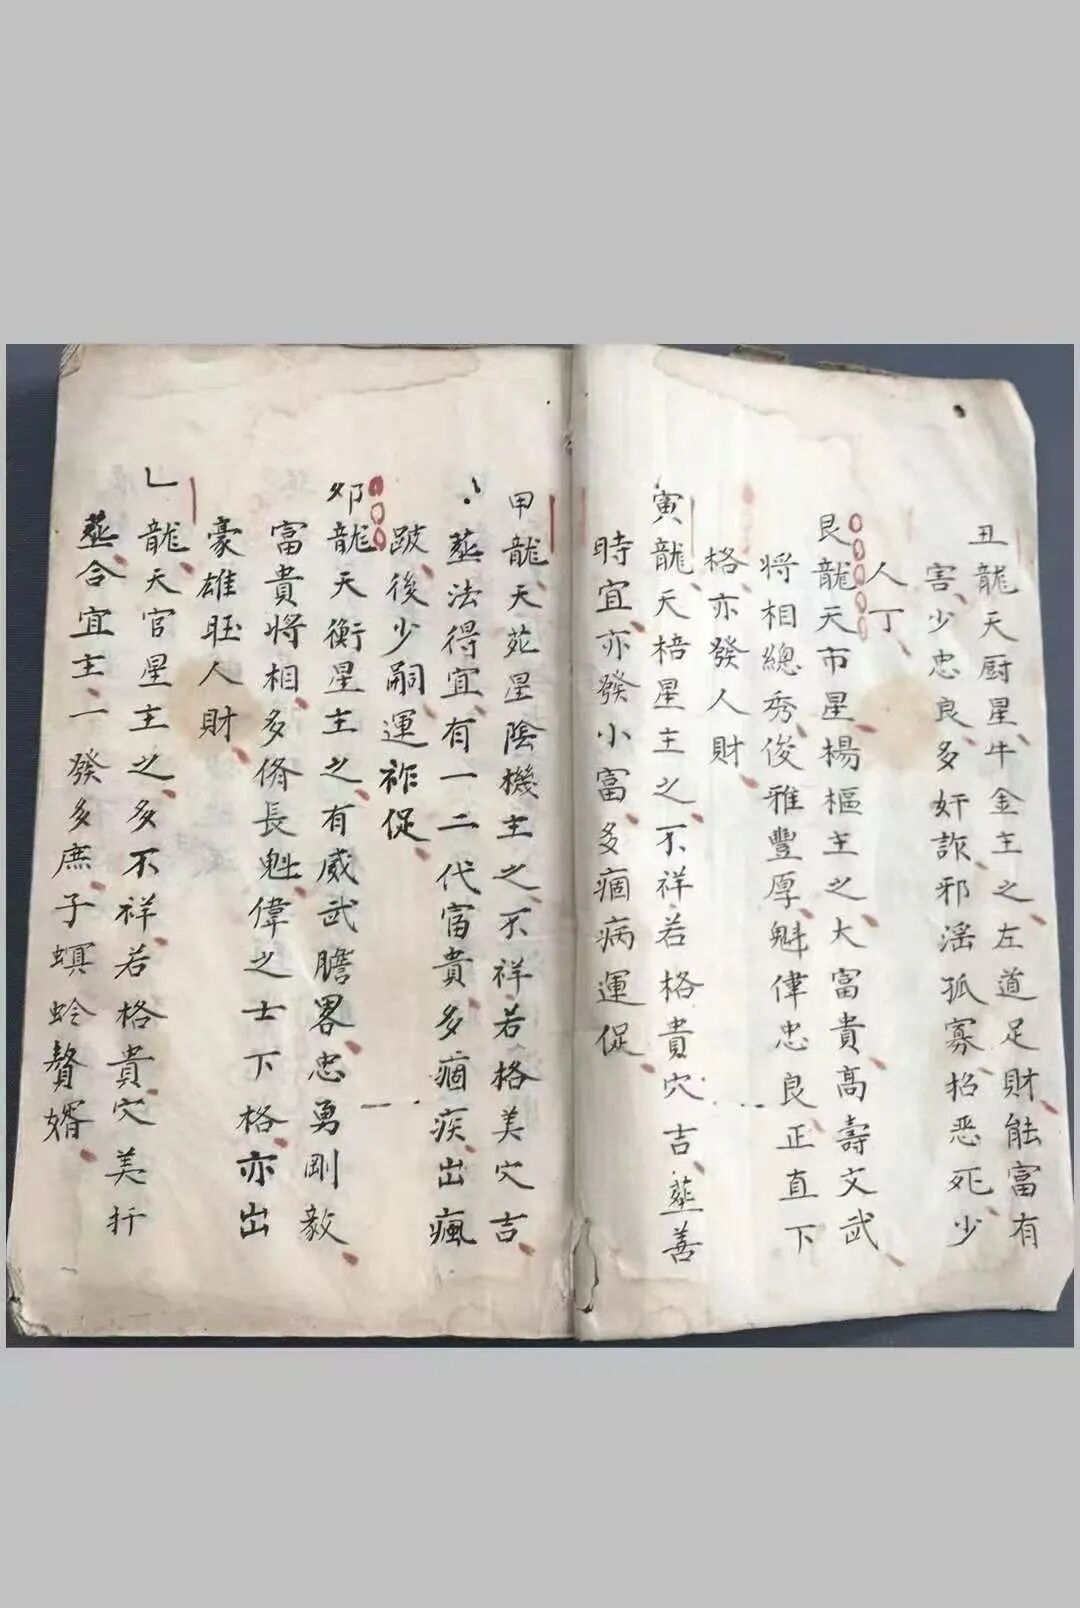 丑龍天厨星牛金主之左道足財能富有
害少忠良多奸詐邪滛孤寡招恶死少
人丁
艮龍天市星楊樞主之大富貴高壽文武
将相總秀俊雅豐厚魁偉忠良正直下
格亦發人財
寅龍天棓星主之不祥若格貴穴吉塟善
時宜亦發小富多痼病運促
甲龍天苑星陰機主之不祥若格美穴吉
塟法得宜有一二代富貴多痼疾出瘋
跛後少嗣運祚促
夘龍天衡星主之有威武膽畧忠勇剛毅
富貴將相多脩長魁偉之士下格亦出
豪雄旺人財
乚龍天官星主之多不祥若格貴穴美扦
塟合宜主一發多庶子螟蛉贅婿